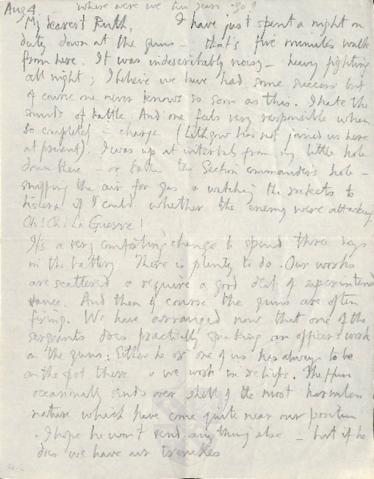 Aug 4. where were we two years ago?
My dearest Ruth, I have just spent a night on
duty down at the guns – that's five minutes walk
from here. It was indescribably noisy – heavy fighting
all night; I believe we have had some success but
of course one never knows so soon as this. I hate the
sounds of battle. And one feels very responsible when
so completely in charge (Lithgow has not joined us here
at present). I was up at intervals from my little hole
down there – or rather the Section commanders hole –
sniffing the air for gas & watching the rockets to
discern if I could whether the enemy were attacking
Ch! Ch! La Guerre!
It's a very comforting change to spend three days
in the battery There is plenty to do. Our works
are scattered & require a good deal of superintend
ance. And then of course the guns are often
firing. We have arranged now that one of the
sergeants does practically speaking an officer's work
on the guns: Either he or one of us has always to be
on the spot there & we work in reliefs. The Hun
occasionally sends over shell of the most harmless
nature which have come quite near our position
. I hope he won't send anything else – but if he
does we have our trenches